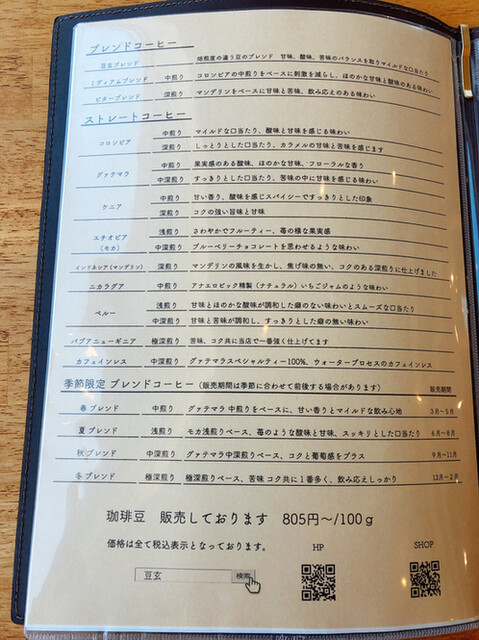 ブレンドコーヒー
豆玄ブレンド 焙煎度の違う豆のブレンド 甘味、酸味、苦味のバランスを取りマイルドな口当たり
ミディアムブレンド 中煎り コロンビアの中煎りをベースに刺激を減らし、ほのかな甘味と酸味のある味わい
ビターブレンド 深煎り マンデリンをベースに甘味と苦味、飲み応えのある味わい
ストレートコーヒー
コロンビア 中煎り マイルドな口当たり、酸味と甘味を感じる味わい
深煎り しっとりとした口当たり、カラメルの甘味と苦味を感じます
グァテマラ 中煎り 果実感のある酸味、ほのかな甘味、フローラルな香り
中深煎り すっきりとした口当たり、苦味の中に甘味を感じる味わい
ケニア 中煎り 甘い香り、酸味を感じスパイシーですっきりとした印象
深煎り コクの強い旨味と甘味
エチオピア（モカ） 浅煎り さわやかでフルーティー、苺の様な果実感
中深煎り ブルーベリーチョコレートを思わせるような味わい
インドネシア(マンデリン) 深煎り マンデリンの風味を生かし、焦げ味の無い、コクのある深煎りに仕上げました
ニカラグア 中煎り アナエロビック精製（ナチュラル）いちごジャムのような味わい
ペルー 浅煎り 甘味とほのかな酸味が調和した癖のない味わいとスムーズな口当たり
中深煎り 甘味と苦味が調和し、すっきりとした癖の無い味わい
パプアニューギニア 極深煎り 苦味、コク共に当店で一番強く仕上げてます
カフェインレス 中深煎り グァテマラスペシャルティー100%、ウォータープロセスのカフェインレス
季節限定 ブレンドコーヒー（販売期間は季節に合わせて前後する場合があります） 販売期間
春ブレンド 中煎り グァテマラ 中煎りをベースに、甘い香りとマイルドな飲み心地 3月～5月
夏ブレンド 浅煎り モカ浅煎りベース、苺のような酸味と甘味、スッキリとした口当たり 6月～8月
秋ブレンド 中深煎り グァテマラ中深煎りベース、コクと葡萄感をプラス 9月～11月
冬ブレンド 極深煎り 極深煎りベース、苦味 コク共に１番多く、飲み応えしっかり 12月～2月
珈琲豆 販売しております 805円～/100ｇ
価格は全て税込表示となっております。 HP SHOP
豆玄 検索